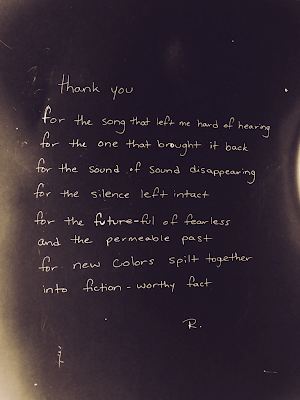 thank you
for the song that left me hard of hearing
for the one that brought it back
for the sound of sound disappearing
for the silence left intact
for the future-ful of fearless
and the permeable past
for new colors spilt together
into fiction-worthy fact
R.